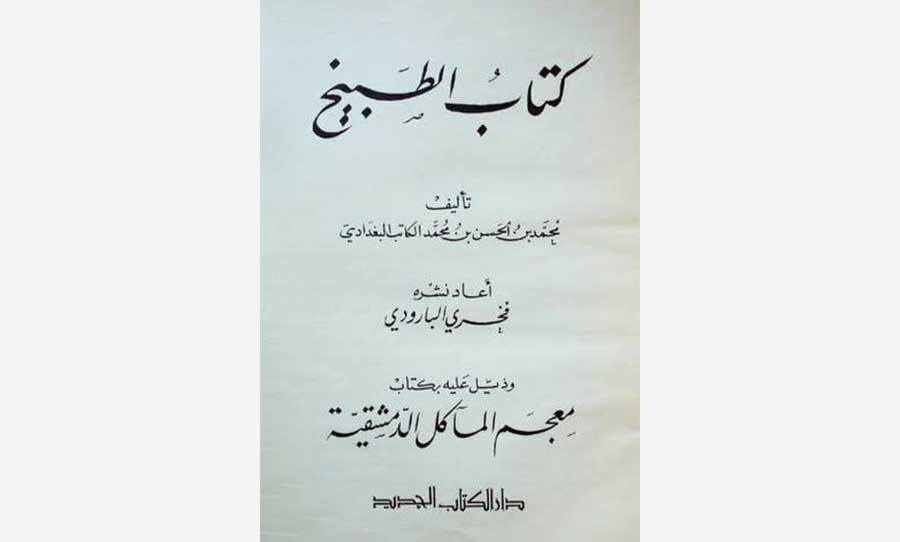 كتابُ الطَبيخ
تأليف
محمّد بن الحسن بن محُمَّد الكاتب البغدادي
أعاد نشره
فخري البارودي
وذيّل عَليه بكتاب
معجم المآكل الدّمشِقيّة
دار الكتاب الجديد